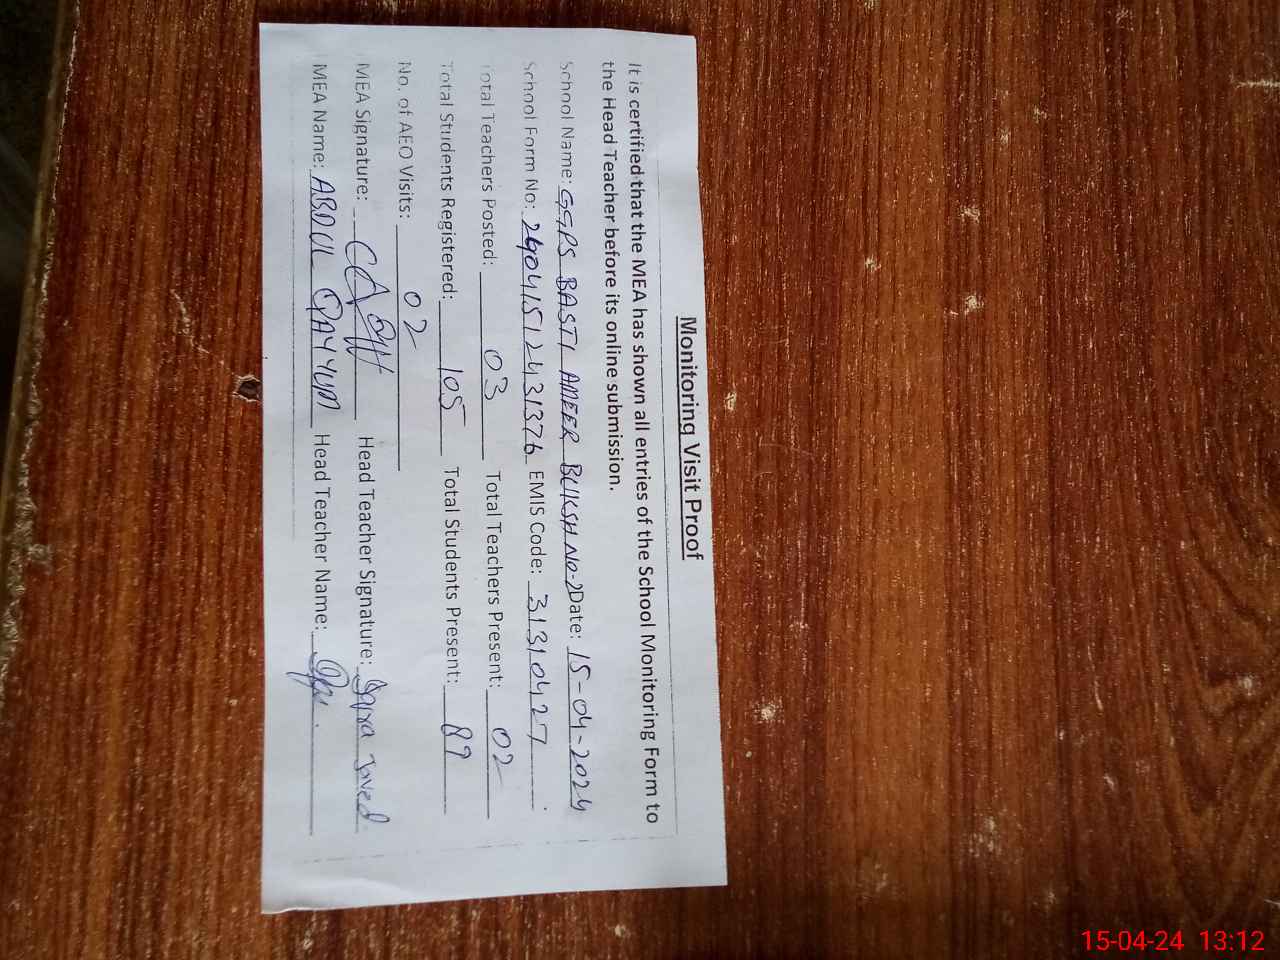 Monitoring Visit Proof
It is certified that the MEA has shown all entries of the School Monitoring Form to
the Head Teacher before its online submission.
School Name: GGPS BASTI AMEER BUKSH No-2 Date: 15-04-2024
School Form No: EMIS Code: 31310427
Total Teachers Posted: 03 Total Teachers Present: 02
Total Students Registered: 105 Total Students Present: 89
No. of AEO Visits: 02
MEA Signature: Head Teacher Signature: Saira Javed
MEA Name: ABDUL QAYYUM Head Teacher Name:
15-04-24 13:12